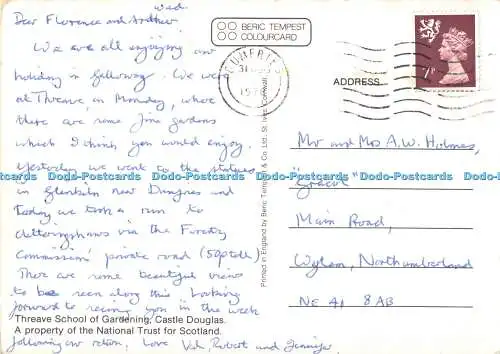 Wed.
Dear Florence and Arthur
We are all enjoying our
holiday in Galloway. We were
at Threave on Monday, where
there are some fine gardens
which I think you would enjoy.
Yesterday we went to the statues
in Glenkiln near Dumfries and
Today we took a run to
Clatteringshaws via the Forestry
Commissions' private road (50p toll)
There are some beautiful views
to be seen along this. Looking
forward to seeing you in the week
Threave School of Gardening, Castle Douglas.
A property of the National Trust for Scotland.
following our return, Love Robert and Jennifer
BERIC TEMPEST
COLOURCARD
DUMFRIES
7P
ADDRESS
Printed in England by Beric Tempest & Co. Ltd., St. Ives, Cornwall
Mr and Mrs A.W. Holmes,
Main Road,
Wylam, Northumberland
NE 41 8AB
Dodo-Postcards Dodo-Postcards Dodo-Postcards Dodo-Postcards Dodo-Postcards